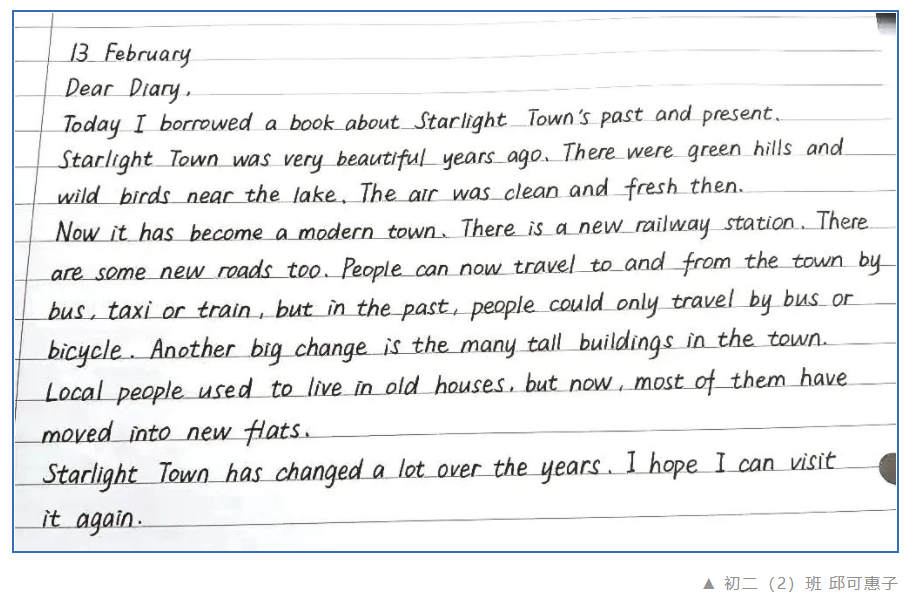 13 February
Dear Diary,
Today I borrowed a book about Starlight Town's past and present.
Starlight Town was very beautiful years ago. There were green hills and
wild birds near the lake. The air was clean and fresh then.
Now it has become a modern town. There is a new railway station. There
are some new roads too. People can now travel to and from the town by
bus, taxi or train, but in the past, people could only travel by bus or
bicycle. Another big change is the many tall buildings in the town.
Local people used to live in old houses, but now, most of them have
moved into new flats.
Starlight Town has changed a lot over the years. I hope I can visit
it again.
▲ 初二（2）班 邱可惠子